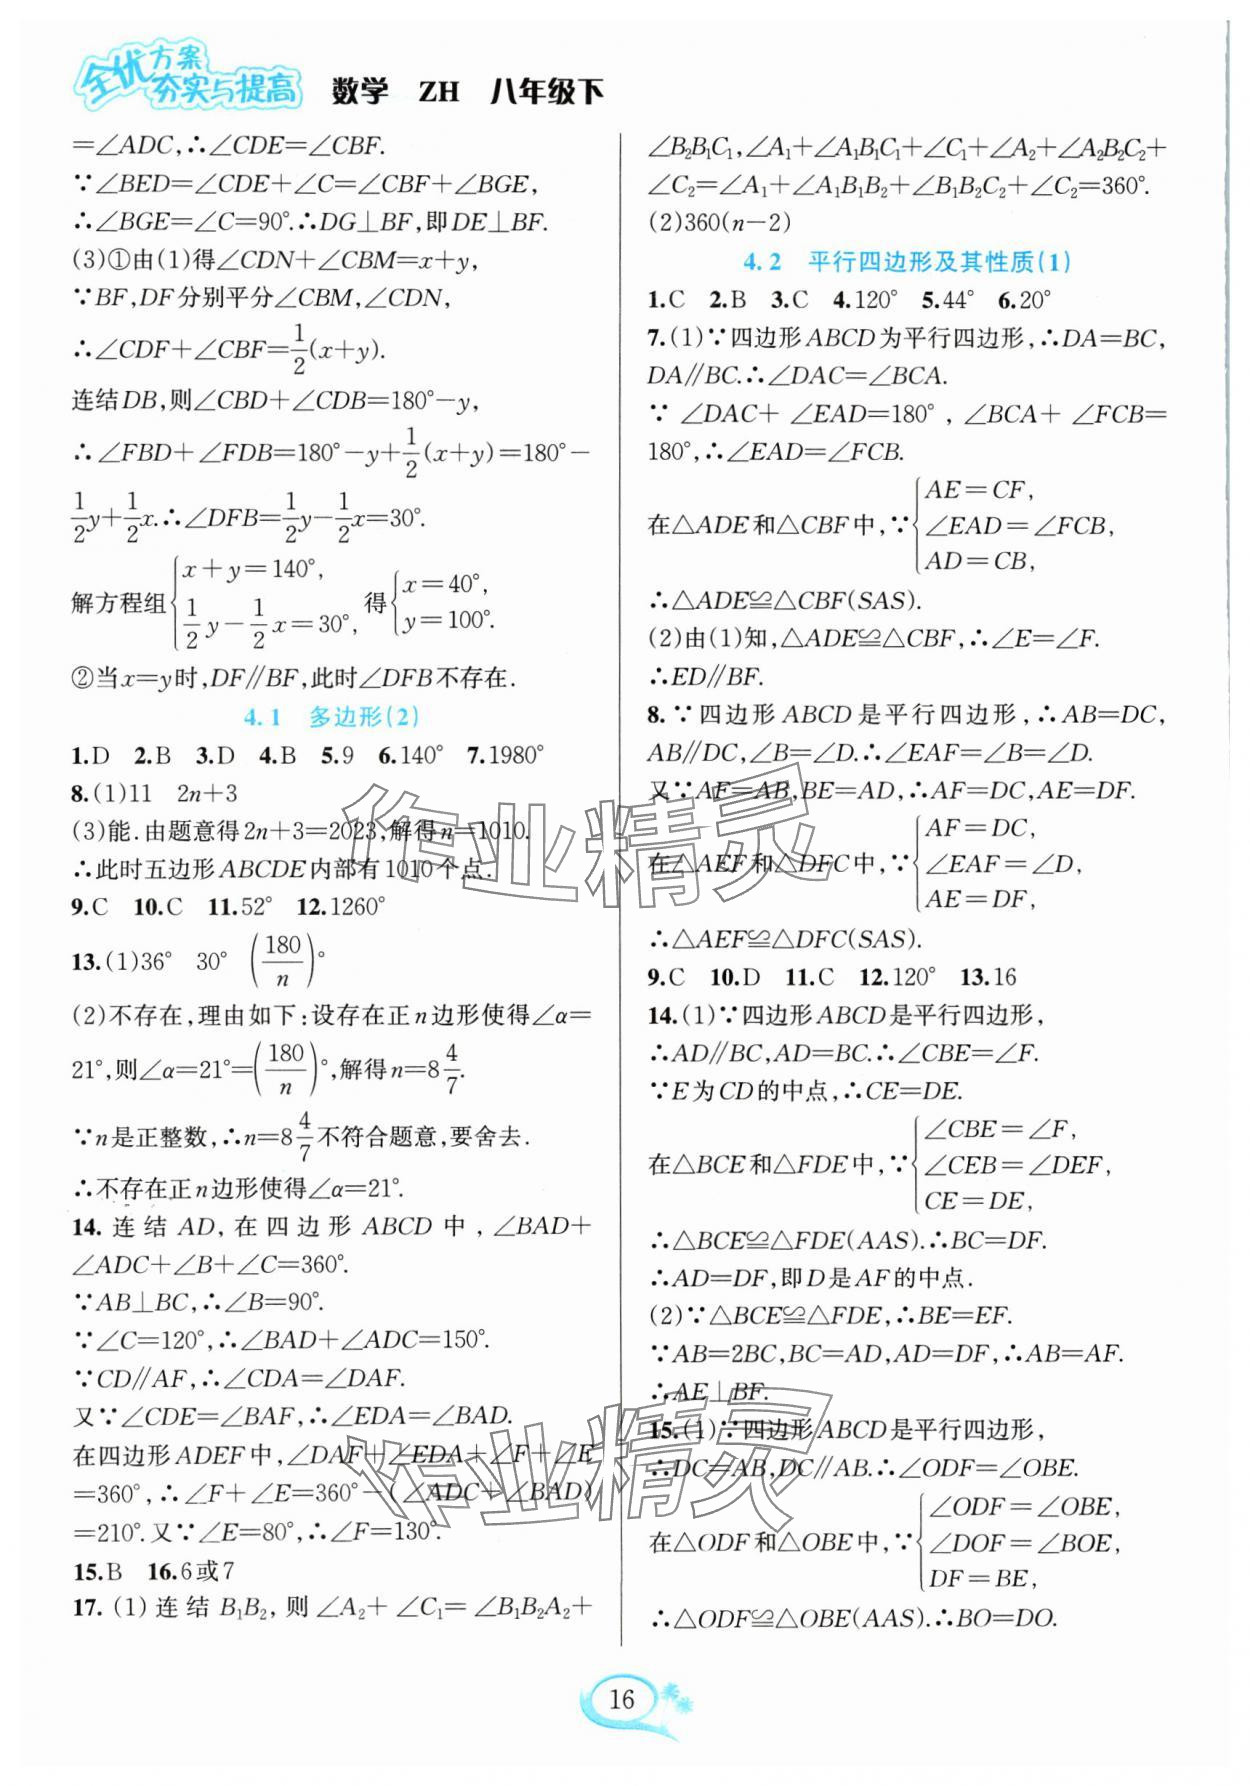 全优方案 夯实与提高 数学 ZH 八年级下
=∠ADC,∴∠CDE=∠CBF.
∵∠BED=∠CDE+∠C=∠CBF+∠BGE,
∴∠BGE=∠C=90°.∴DG⊥BF,即DE⊥BF.
(3)①由(1)得∠CDN+∠CBM=x+y,
∵BF,DF分别平分∠CBM,∠CDN,
∴∠CDF+∠CBF=1/2(x+y).
连结DB,则∠CBD+∠CDB=180°-y,
∴∠FBD+∠FDB=180°-y+1/2(x+y)=180°-
1/2y+1/2x.∴∠DFB=1/2y-1/2x=30°.
解方程组{x+y=140°, 1/2y-1/2x=30°, 得{x=40°, y=100°.
②当x=y时,DF∥BF,此时∠DFB不存在.
4.1 多边形(2)
1.D 2.B 3.D 4.B 5.9 6.140° 7.1980°
8.(1)11 2n+3
(3)能.由题意得2n+3=2023,解得n=1010.
∴此时五边形ABCDE内部有1010个点.
9.C 10.C 11.52° 12.1260°
13.(1)36° 30° (180/n)°
(2)不存在,理由如下:设存在正n边形使得∠α=
21°,则∠α=21°=(180/n)°,解得n=8 4/7.
∵n是正整数,∴n=8 4/7不符合题意,要舍去.
∴不存在正n边形使得∠α=21°.
14.连结AD,在四边形ABCD中,∠BAD+
∠ADC+∠B+∠C=360°.
∵AB⊥BC,∴∠B=90°.
∵∠C=120°,∴∠BAD+∠ADC=150°.
∵CD∥AF,∴∠CDA=∠DAF.
又∵∠CDE=∠BAF,∴∠EDA=∠BAD.
在四边形ADEF中,∠DAF+∠EDA+∠F+∠E
=360°,∴∠F+∠E=360°-(∠ADC+∠BAD)
=210°.又∵∠E=80°,∴∠F=130°.
15.B 16.6或7
17.(1)连结B₁B₂,则∠A₂+∠C₁=∠B₁B₂A₂+
∠B₂B₁C₁,∠A₁+∠A₁B₁C₁+∠C₁+∠A₂+∠A₂B₂C₂+
∠C₂=∠A₁+∠A₁B₁B₂+∠B₁B₂C₂+∠C₂=360°.
(2)360(n-2)
4.2 平行四边形及其性质(1)
1.C 2.B 3.C 4.120° 5.44° 6.20°
7.(1)∵四边形ABCD为平行四边形,∴DA=BC,
DA∥BC.∴∠DAC=∠BCA.
∵∠DAC+∠EAD=180°,∠BCA+∠FCB=
180°,∴∠EAD=∠FCB.
在△ADE和△CBF中,∵{AE=CF, ∠EAD=∠FCB, AD=CB,
∴△ADE≌△CBF(SAS).
(2)由(1)知,△ADE≌△CBF,∴∠E=∠F.
∴ED∥BF.
8.∵四边形ABCD是平行四边形,∴AB=DC,
AB∥DC,∠B=∠D.∴∠EAF=∠B=∠D.
又∵AF=AB,BE=AD,∴AF=DC,AE=DF.
在△AEF和△DFC中,∵{AF=DC, ∠EAF=∠D, AE=DF,
∴△AEF≌△DFC(SAS).
9.C 10.D 11.C 12.120° 13.16
14.(1)∵四边形ABCD是平行四边形,
∴AD∥BC,AD=BC.∴∠CBE=∠F.
∵E为CD的中点,∴CE=DE.
在△BCE和△FDE中,∵{∠CBE=∠F, ∠CEB=∠DEF, CE=DE,
∴△BCE≌△FDE(AAS).∴BC=DF.
∴AD=DF,即D是AF的中点.
(2)∵△BCE≌△FDE,∴BE=EF.
∵AB=2BC,BC=AD,AD=DF,∴AB=AF.
∴AE⊥BF.
15.(1)∵四边形ABCD是平行四边形,
∴DC=AB,DC∥AB.∴∠ODF=∠OBE.
在△ODF和△OBE中,∵{∠ODF=∠OBE, ∠DOF=∠BOE, DF=BE,
∴△ODF≌△OBE(AAS).∴BO=DO.
16
作业精灵
作业精灵